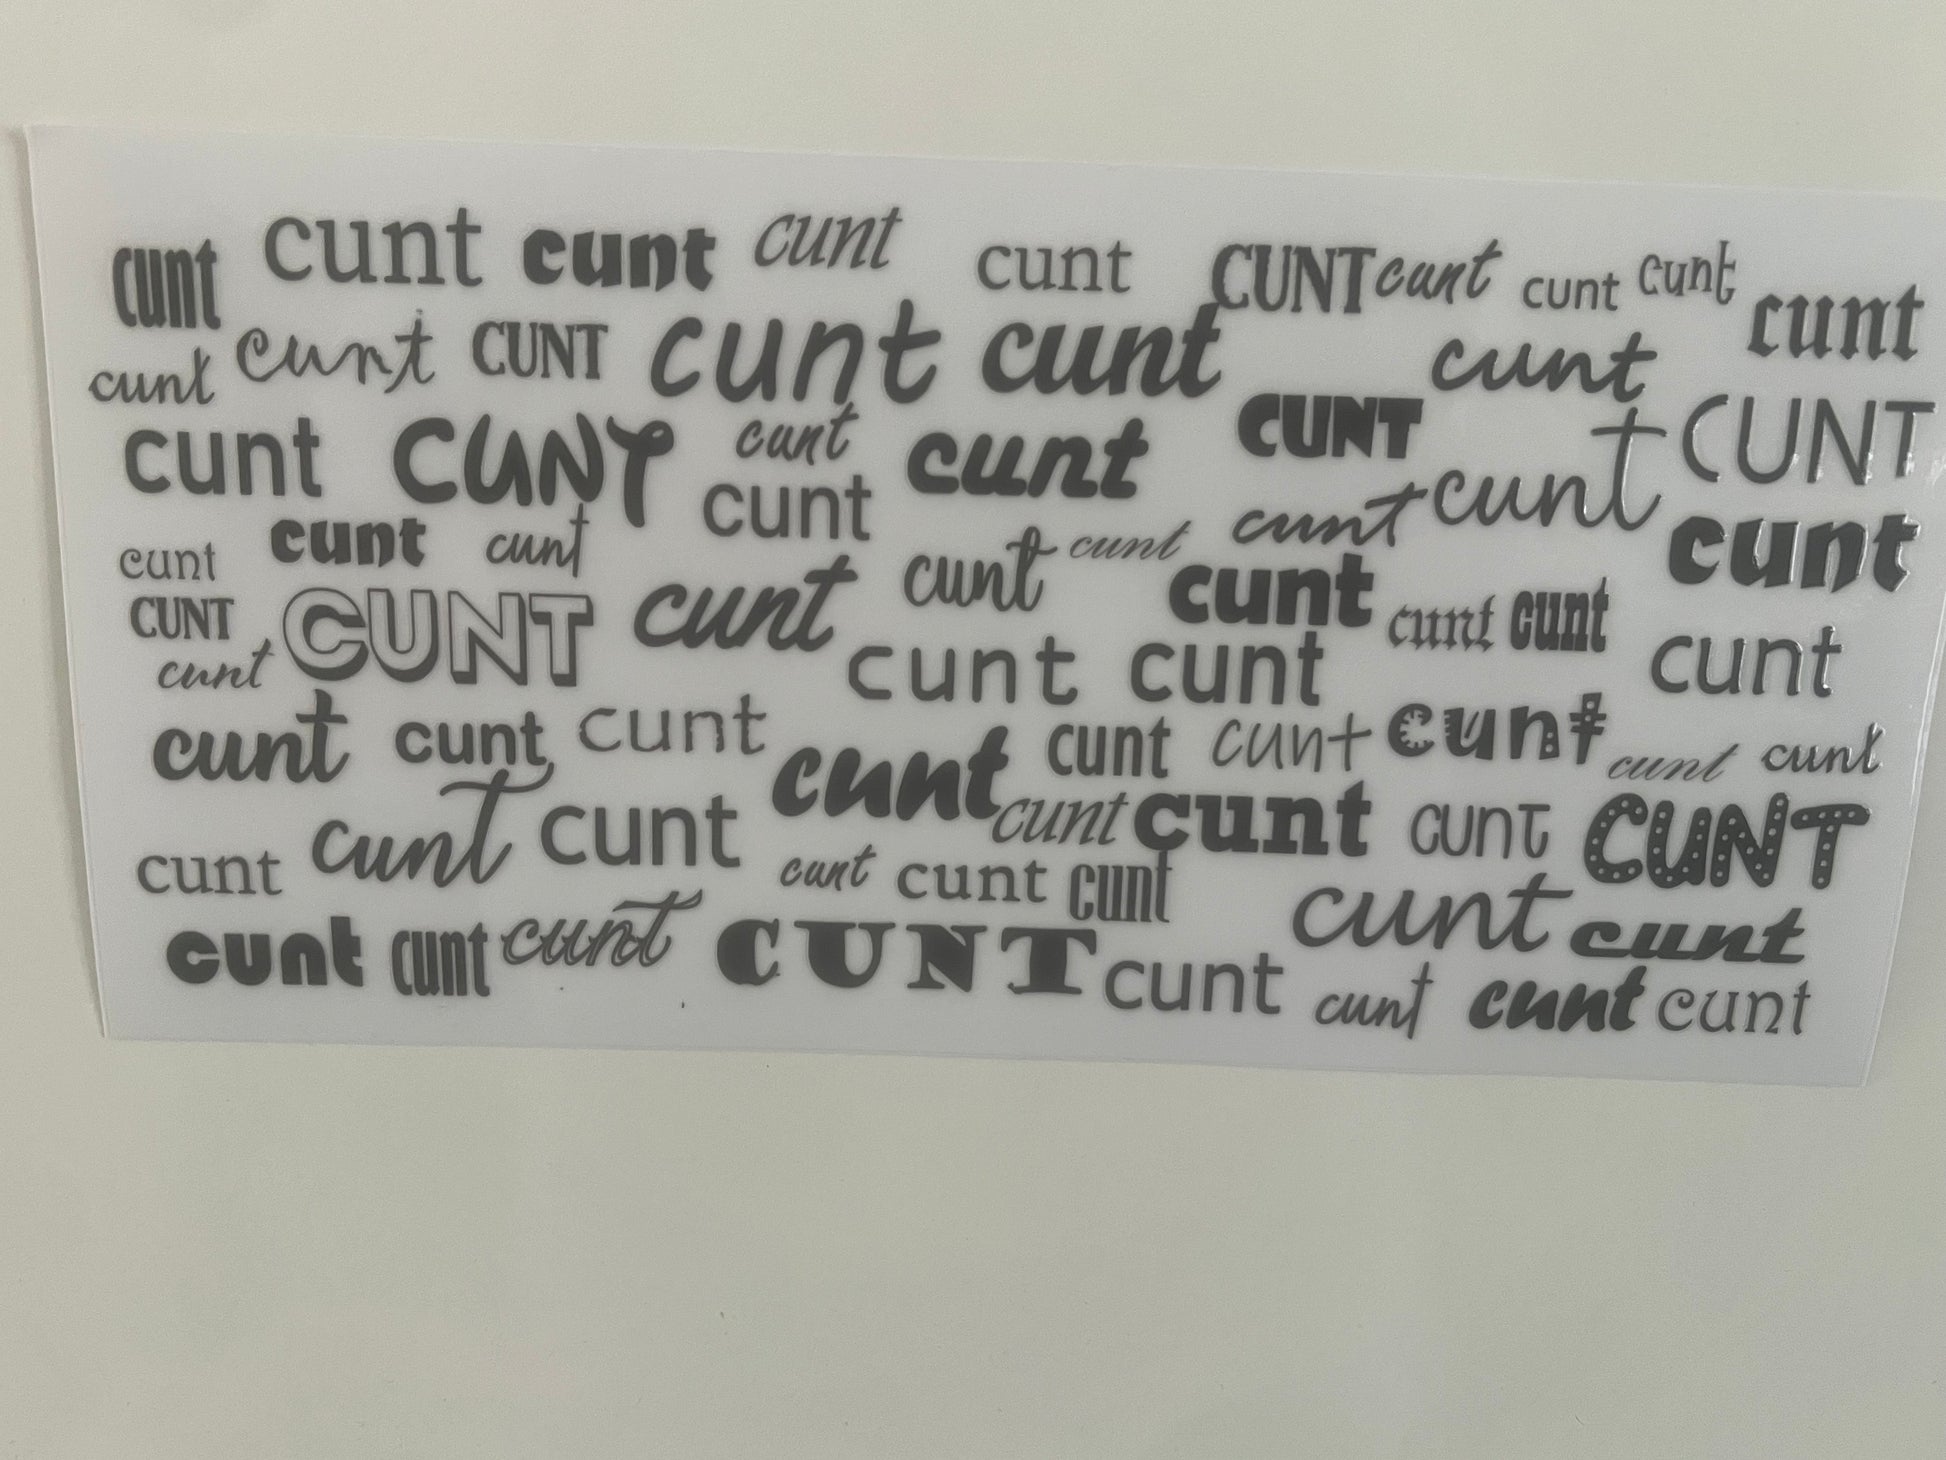 cunt cunt cunt cunt cunt CUNT cunt cunt cunt cunt
cunt cunt CUNT cunt cunt cunt
cunt CUNT cunt cunt CUNT cunt CUNT
cunt cunt cunt cunt cunt cunt cunt cunt
CUNT CUNT cunt cunt cunt cunt cunt
cunt cunt cunt cunt
cunt cunt cunt cunt cunt cunt cunt cunt cunt
cunt cunt cunt cunt cunt cunt CUNT
cunt cunt cunt cunt cunt cunt
cunt cunt cunt CUNT cunt cunt cunt cunt